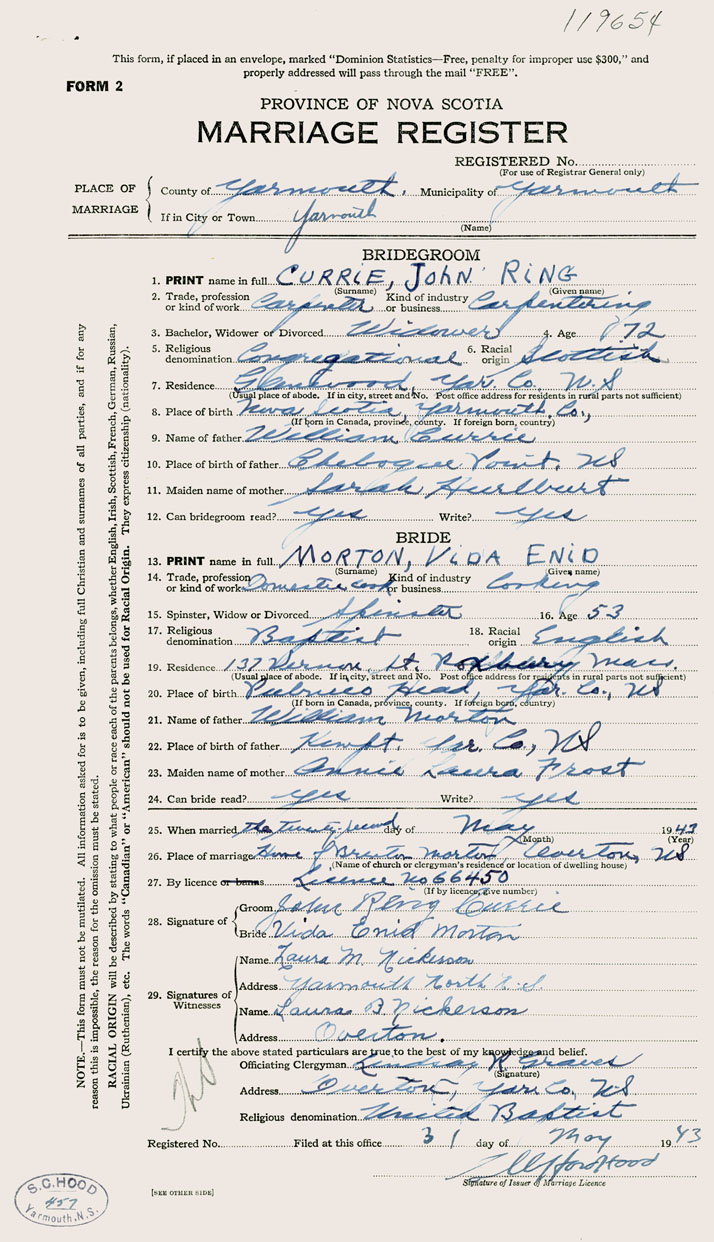 119654
This form, if placed in an envelope, marked "Dominion Statistics—Free, penalty for improper use $300," and
properly addressed will pass through the mail "FREE".
FORM 2
PROVINCE OF NOVA SCOTIA
MARRIAGE REGISTER
REGISTERED No.
(For use of Registrar General only)
PLACE OF MARRIAGE
County of Yarmouth. Municipality of Yarmouth
If in City or Town Yarmouth
(Name)
BRIDEGROOM
1. PRINT name in full CURRIE, JOHN RING
(Surname) (Given name)
2. Trade, profession or kind of work Carpenter Kind of industry or business Carpentering
3. Bachelor, Widower or Divorced Widower 4. Age 72
5. Religious denomination Congregational 6. Racial origin Scottish
7. Residence Glenwood, Yar. Co. N.S
(Usual place of abode. If in city, street and No. Post office address for residents in rural parts not sufficient)
8. Place of birth Nova Scotia, Yarmouth, Co.,
(If born in Canada, province, county. If foreign born, country)
9. Name of father William Currie
10. Place of birth of father Chebogue Point. NS
11. Maiden name of mother Sarah Hurlburt
12. Can bridegroom read? yes Write? yes
BRIDE
13. PRINT name in full MORTON, VIDA ENID
(Surname) (Given name)
14. Trade, profession or kind of work Domestic cook Kind of industry or business Cooking
15. Spinster, Widow or Divorced Spinster 16. Age 53
17. Religious denomination Baptist 18. Racial origin English
19. Residence 137 Vernon, St. Roxbury Mass.
(Usual place of abode. If in city, street and No. Post office address for residents in rural parts not sufficient)
20. Place of birth Pubnico Head, Yar. Co., NS
(If born in Canada, province, county. If foreign born, country)
21. Name of father William Morton
22. Place of birth of father Kempt. Yar. Co., NS
23. Maiden name of mother Annie Laura Frost
24. Can bride read? yes Write? yes
25. When married the twenty-second day of May 1943
(Month) (Year)
26. Place of marriage Home of Morton, Overton, NS
(Name of church or clergyman's residence or location of dwelling house)
27. By licence or banns Licence No 66450
(If by licence, give number)
28. Signature of
Groom John Ring Currie
Bride Vida Enid Morton
29. Signatures of Witnesses
Name Laura M. Nickerson
Address Yarmouth North N.S
Name Laura B. Nickerson
Address Overton.
I certify the above stated particulars are true to the best of my knowledge and belief.
Officiating Clergyman Lindsay R Graves
(Signature)
Address Overton, Yar. Co., NS
Religious denomination United Baptist
Registered No. Filed at this office 31 day of May 1943
Hood
Signature of Issuer of Marriage Licence
[SEE OTHER SIDE]
S.C. HOOD
457
Yarmouth, N.S.
NOTE.—This form must not be mutilated. All information asked for is to be given, including full Christian and surnames of all parties, and if for any
reason this is impossible, the reason for the omission must be stated.
RACIAL ORIGIN will be described by stating to what people or race each of the parents belongs, whether English, Irish, Scottish, French, German, Russian,
Ukrainian (Ruthenian), etc. The words "Canadian" or "American" should not be used for Racial Origin. They express citizenship (nationality).